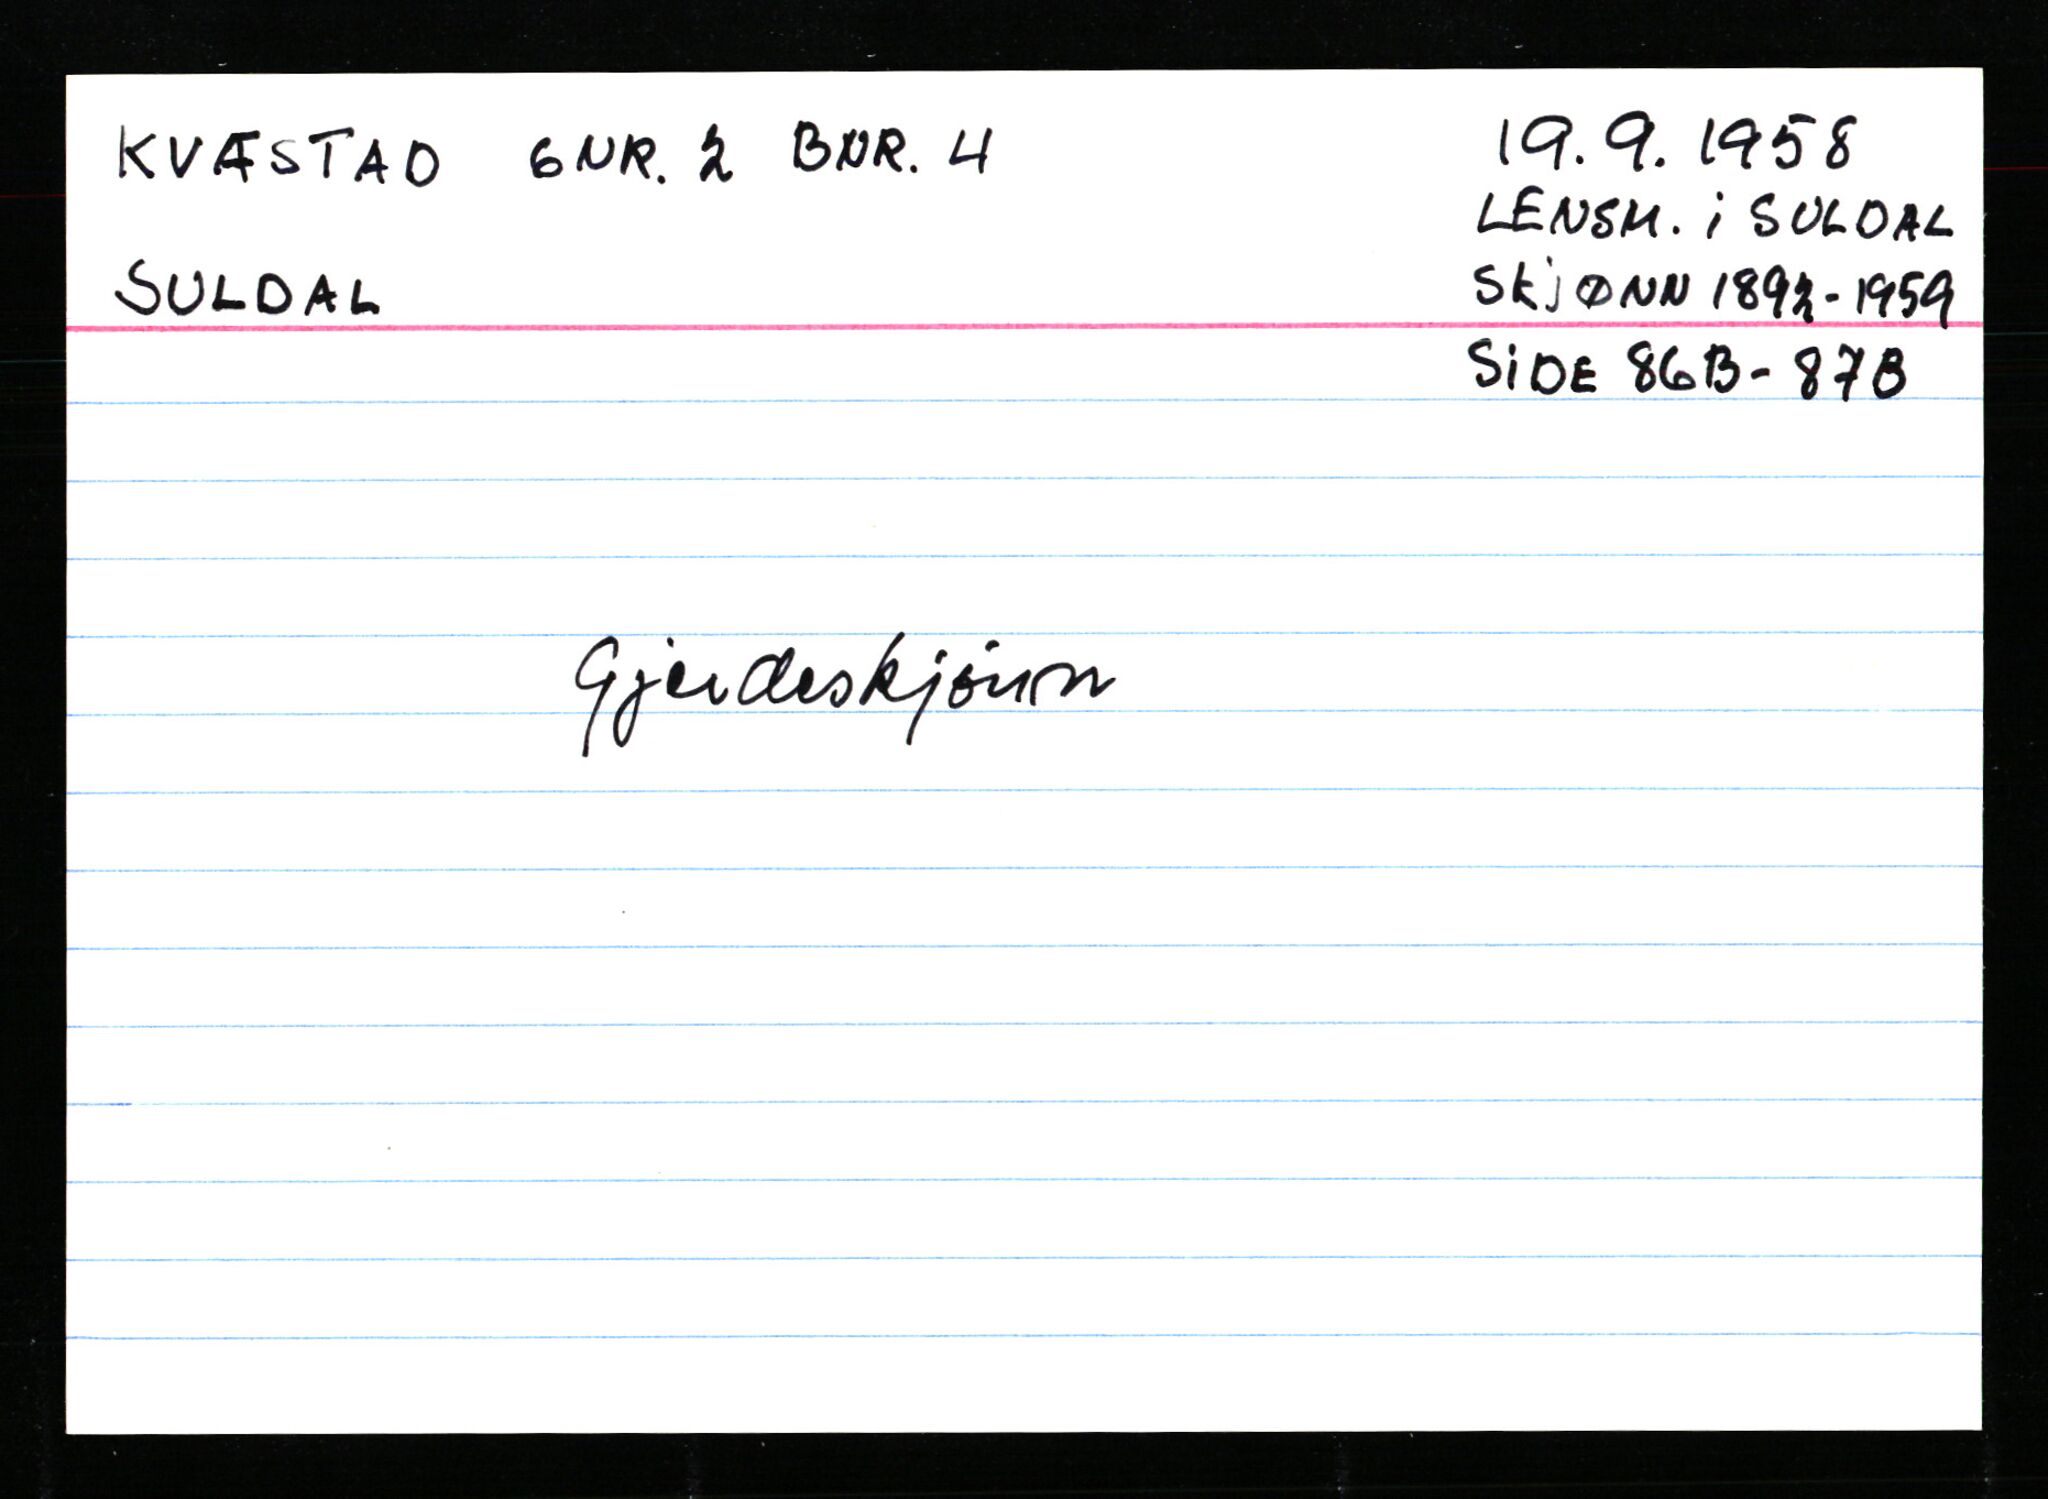 KVÆSTAD GNR. 2 BNR. 4
SULDAL
19.9.1958
LENSM. i SULDAL
SKjØNN 1892-1959
SiDE 86B-87B
Gjerdeskjønn